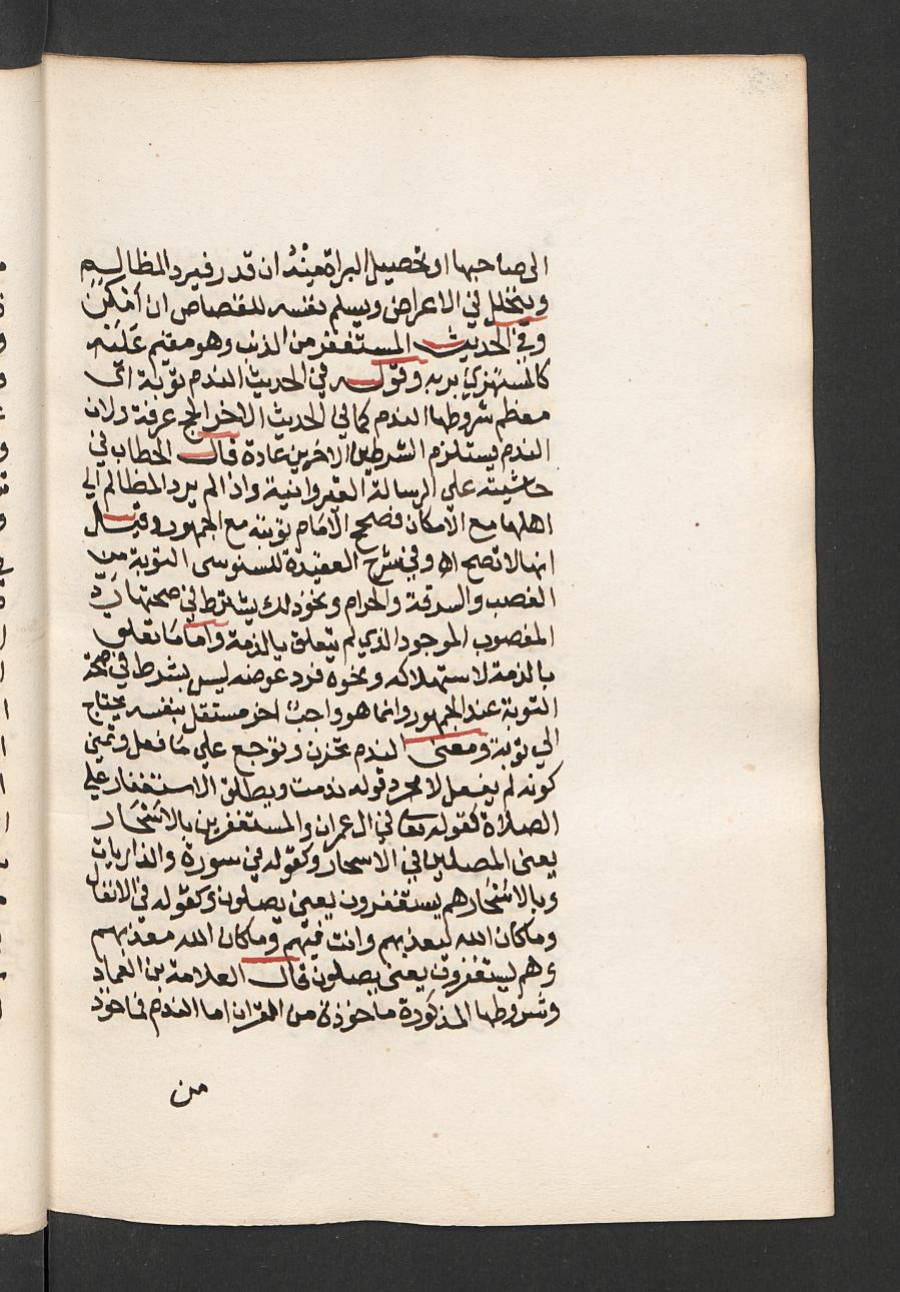 الى صاحبها او تحصيل البراة مِنْهُ ان قدر فيرد المظالم
ويتحلل في الاعراض ويسلم نفسه للقصاص ان امكن
وفي الحديث المستغفر من الذنب وهو مقيم عَلَيْه
كالمستهزئ بربه وقوله في الحديث الندم توبة اى
معظم شروطها الندم كما في الحديث الاخر الحج عرفة ولان
الندم يستلزم الشرطين الاخرين عادة قال الحطاب في
حاشيته علي الرسالة القيروانية واذا لم يرد المظالم الي
اهلها مع الامكان فصحح الامام توبته مع الجمهور وقيل
انها لا تصح اه وفي شرح العقيدة للسنوسى التوبة من
الغصب والسرقة والحرام ونحو ذلك يشترط في صحتها ردّ
المغصوب الموجود الذي لم يتعلق بالذمة واما ما تعلق
بالذمة لاستهلاكه ونحوه فرد عوضه ليس بشرط في صحة
التوبة عند الجمهور وانما هو واجب اخر مستقل بنفسه يحتاج
الي توبة ومعنى الندم تحزن وتوجع علي ما فعل وتمني
كونه لم يفعل لا مجرد قوله ندمت ويطلق الاستغفار علي
الصلاة كقوله تعالى في ال عمران والمستغفرين بالاسْحَار
يعنى المصلين في الاسحار وكقوله في سورة والذاريات
وبالاسْحَار هم يستغفرون يعني يصلون وكقوله في الانفال
وما كان الله ليعذبهم وانت فيهم وما كان الله معذبهم
وهم يستغفرون يعنى يصلون قال العلامة بن العماد
وشروطها المذكورة ماخوذة من القران اما الندم فماخوذ
من